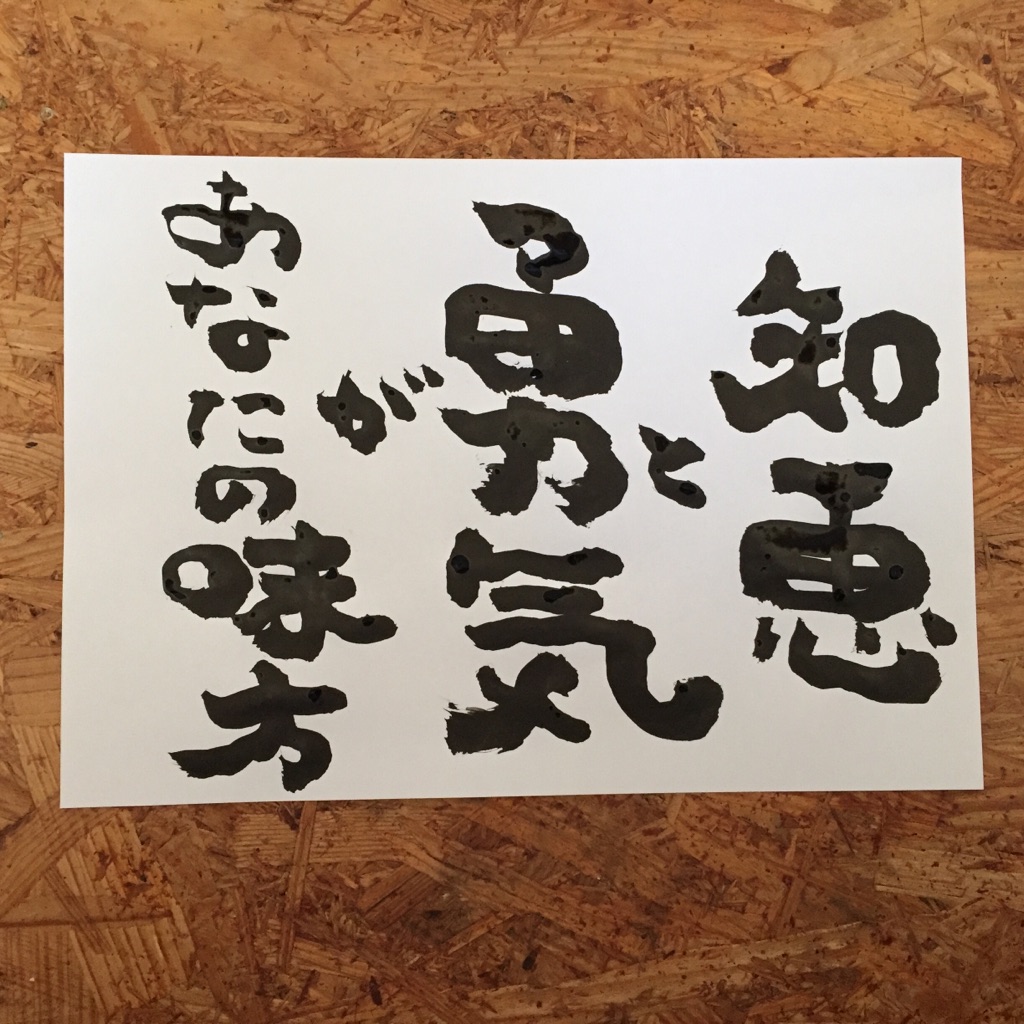 知恵と
勇気が
あなたの味方